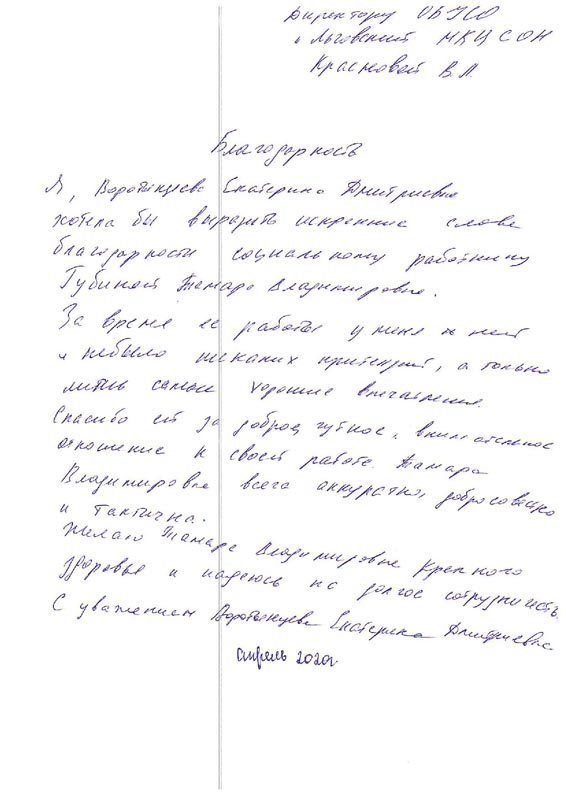 Директору ОБУСО
"Льговский МКЦСОН
Красновой В.Л.
Благодарность
Я, Воробьнцева Екатерина Дмитриевна
хотела бы выразить искренние слова
благодарности социальному работнику
Губиной Тамаре Владимировне.
За время её работы у меня к ней
и небыло никаких притензий, а только
лишь самые хорошие впечатления.
Спасибо ей за доброе, чуткое, внимательное
отношение к своей работе. Тамара
Владимировна всега аккуратна, добросовестно
и тактична.
Желаю Тамаре Владимировне крепкого
здоровья и надеюсь на долгое сотрудничесть.
С уважением Воробьнцева Екатерина Дмитриевна
апрель 2020г.